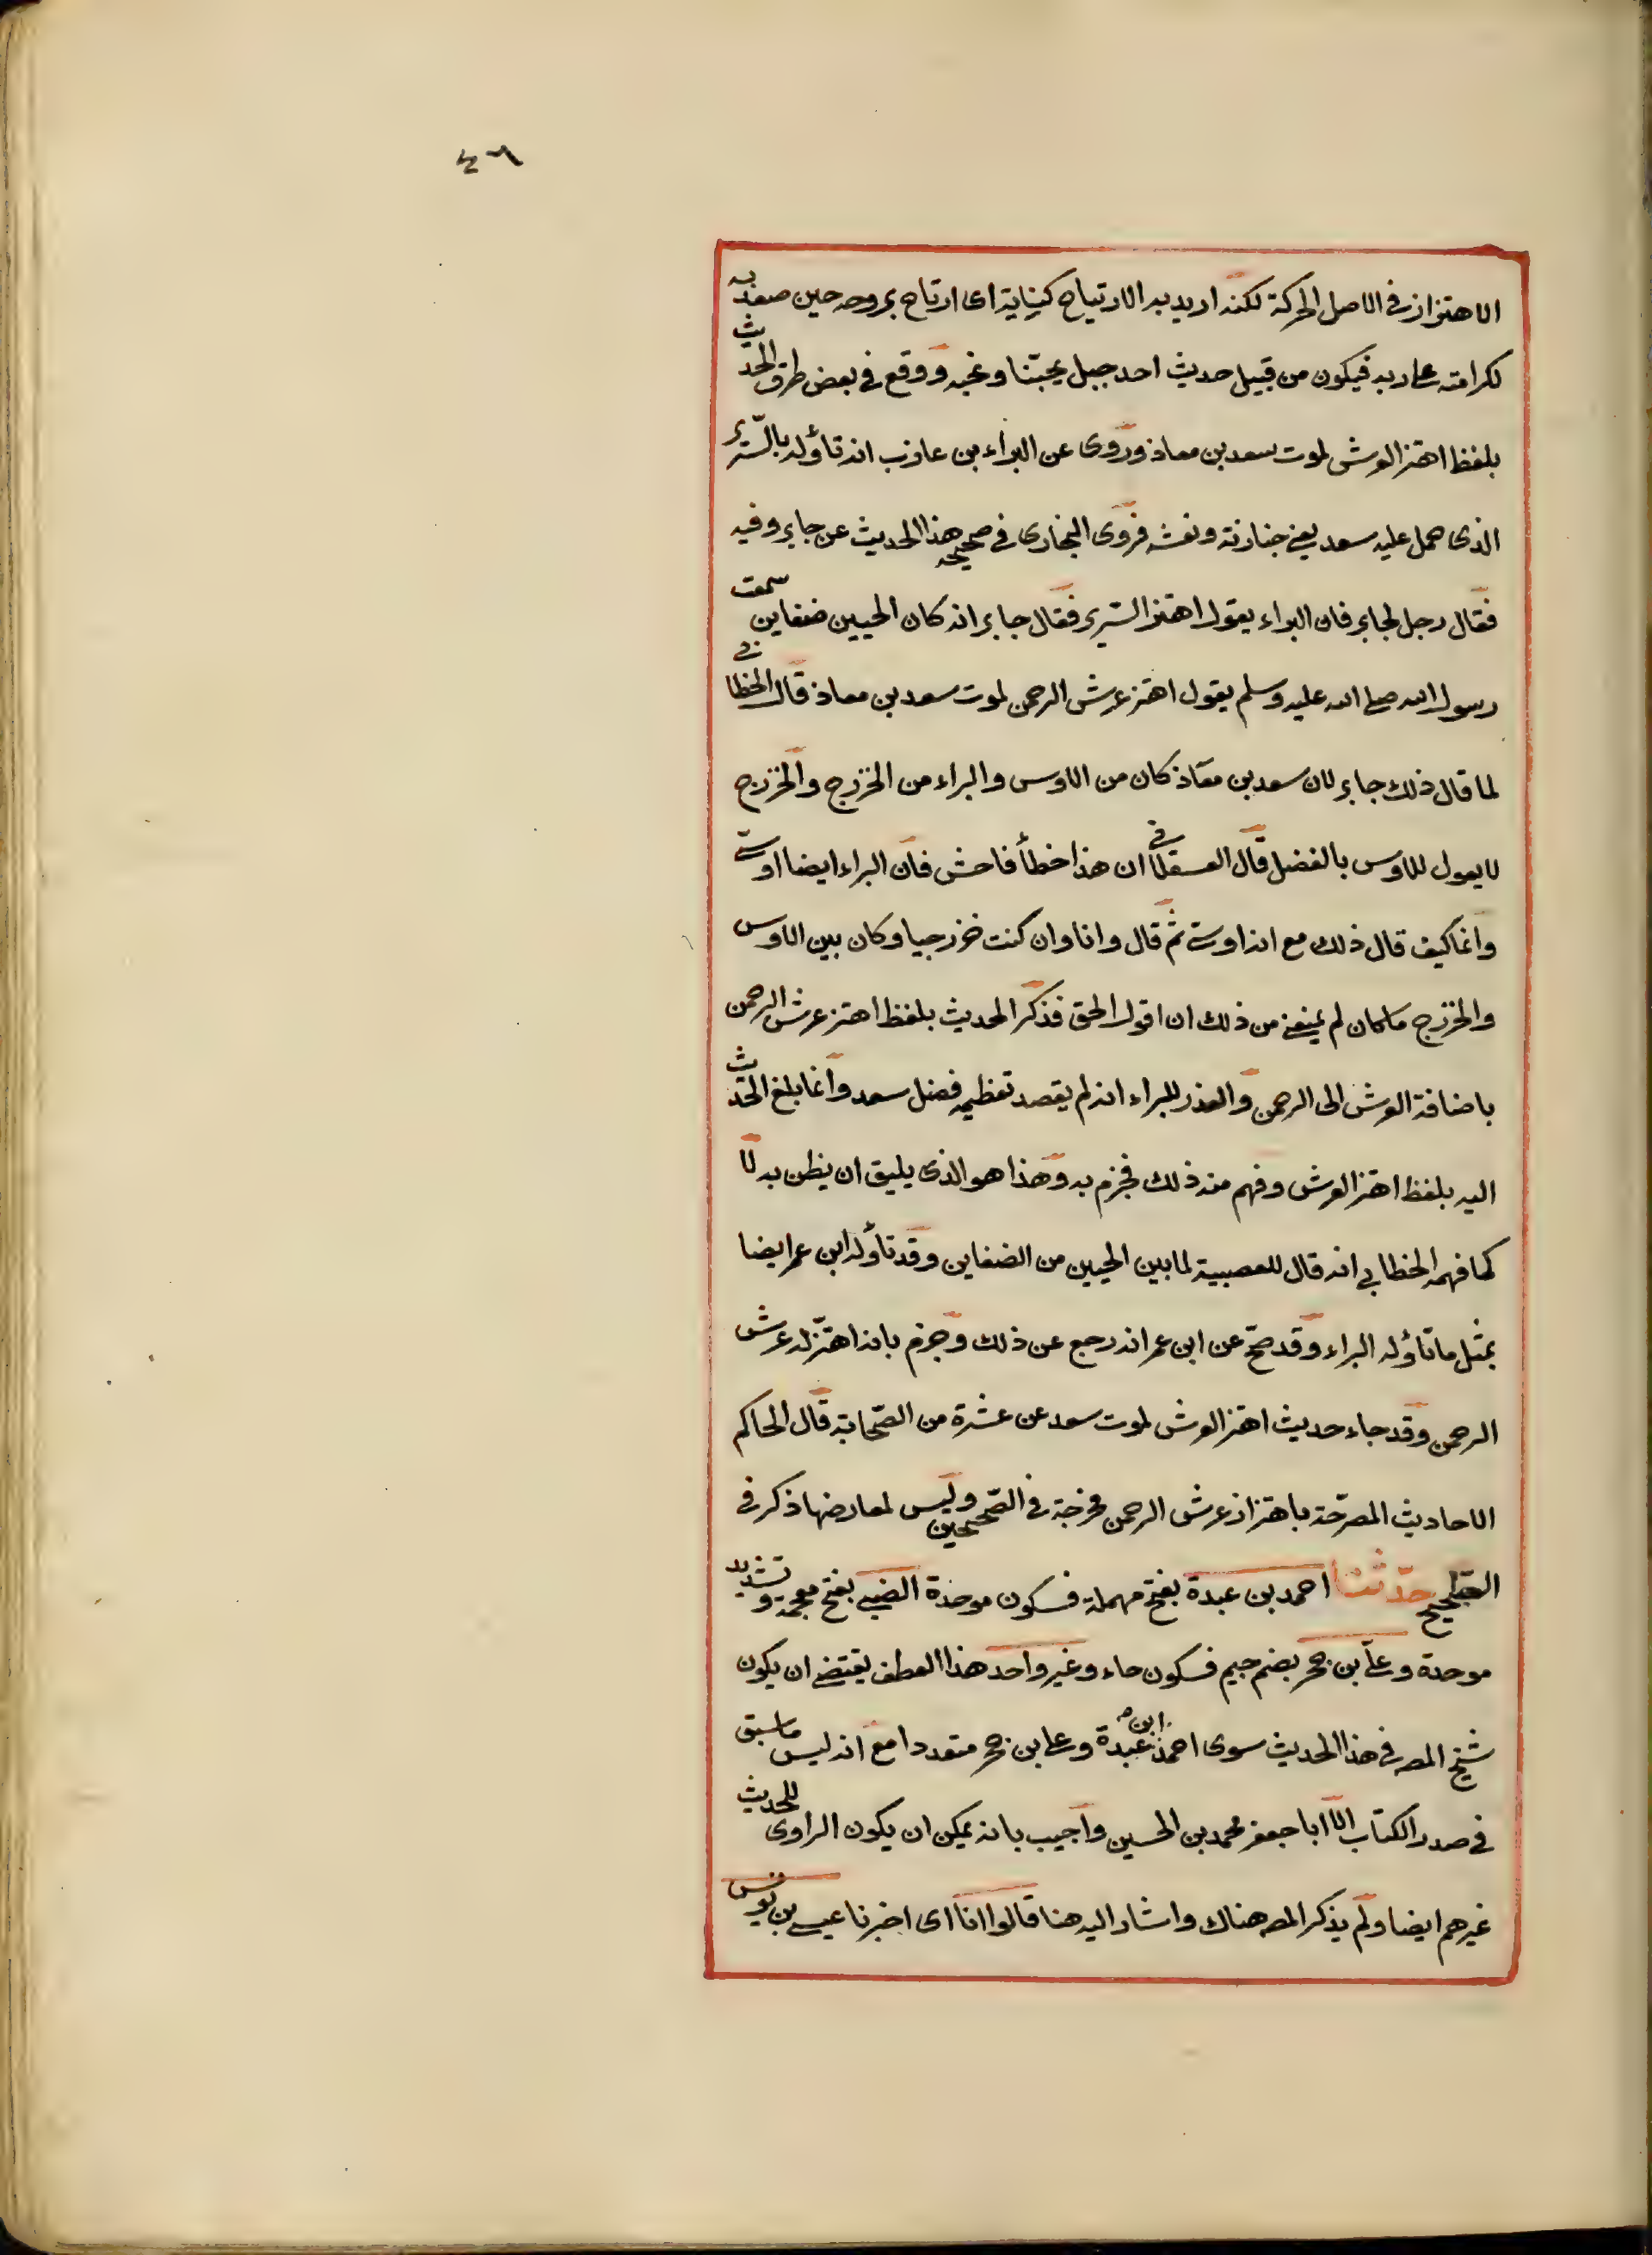 ٤٦
الاهتزاز في الاصل الحركة لكنه اريد به الارتياح كناية اى ارتاح بروحه حين صعد به
لكرامته على ربه فيكون من قبيل حديث احد جبل يحبنا ونحبه ووقع في بعض طرق الحديث
بلفظ اهتز العرش لموت سعد بن معاذ وروى عن البراء بن عازب انه تأوله بالسّرير
الذى حمل عليه سعد يعني جنازته ونعشه فروى البخارى في صحيحه هذا الحديث عن جابر وفيه
فقال رجل لجابر فان البراء يقول اهتز السّرير فقال جابر انه كان الحيين ضغاين سمعت
رسول الله صلى الله عليه وسلم يقول اهتز عرش الرحمن لموت سعد بن معاذ قال الخطابي
لما قال ذلك جابر لان سعد بن معاذ كان من الاوس والبراء من الخزرج والخزرج
لا يعول للاوس بالفضل قال العسقلاني ان هذا خطأ فاحش فان البراء ايضا اوسي
وانما كيف قال ذلك مع انه اوسي ثم قال وانا وان كنت خزرجيا وكان بين الاوس
والخزرج ما كان لم يمنعني من ذلك ان اقول الحق فذكر الحديث بلفظ اهتز عرش الرحمن
باضافة العرش الى الرحمن والعذر للبراء انه لم يقصد تغطيه فضل سعد وانما بلغ الحديث
اليه بلفظ اهتز العرش وفهم منه ذلك فجزم به وهذا هو الذى يليق ان يظن به لا
كما فهمه الخطابي انه قال للعصبية لما بين الحيين من الضغاين وقد تأوله ابن عمر ايضا
بمثل ما تأوله البراء وقد صحّ عن ابن عمر انه رجع عن ذلك وجزم بانه اهتزّ له عرش
الرحمن وقد جاء حديث اهتز العرش لموت سعد عن عشرة من الصّحابة قال الحاكم
الاحاديث المصرّحة باهتزاز عرش الرحمن مخرجة في الصّحيحين وليس لمعارضها ذكر في
الصّحيح حدّثنا احمد بن عبدة بفتح مهملة فسكون موحدة الضبي بفتح معجمة وتشديد
موحدة وعلي بن حجر بضم جيم فسكون حاء وغير واحد هذا العطف يقتضي ان يكون
شيخ المص في هذا الحديث سوى احمد ابن عبدة وعلي بن حجر متعددا مع انه ليس ما سبق
في صدر الكتاب الا ابا جعفر محمد بن الحسين واجيب بانه يمكن ان يكون الراوى للحديث
غيرهم ايضا ولم يذكر المص هناك واشار اليه هنا قالوا انا اى اخبرنا عيسى بن يونس